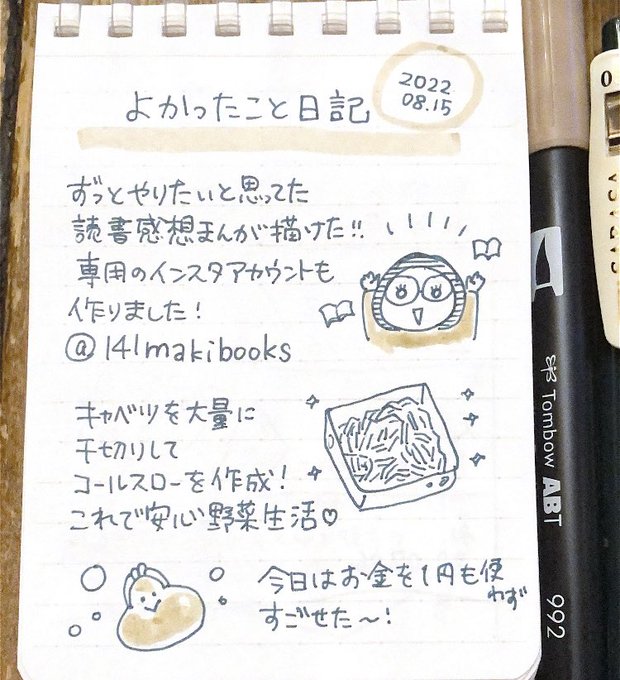 よかったこと日記
2022
08.15
ずっとやりたいと思ってた
読書感想まんが描けた!!
専用のインスタアカウントも
作りました!
@141makibooks
キャベツを大量に
千切りして
コールスローを作成!
これで安心野菜生活♡
今日はお金を1円も使わず
すごせた〜!
Tombow ABT
992
0